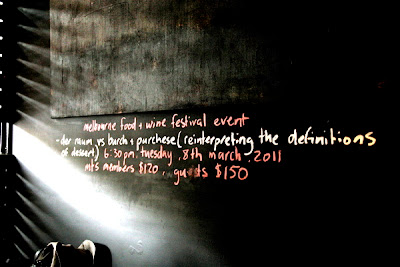 melbourne food + wine festival event
- der raum vs burch + purchese (reinterpreting the definitions
of dessert) 6:30pm. tuesday. 8th march. 2011
mfs members $120. guests $150